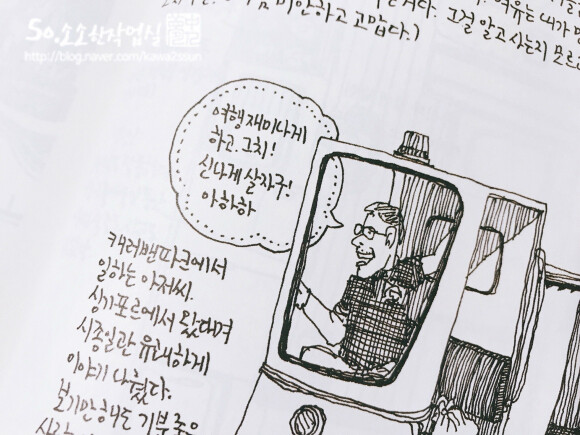 So. 소소한작업실
http://blog.naver.com/kawa2ssun
미안하고 고맙다.)
그걸 알고 사는지 모르
여행 재미나게
하고. 그치!
신나게 살자구!
아하하
캐러밴파크에서
일하는 아저씨.
싱가포르에서 왔다며
시종일관 유쾌하게
이야기 나눴다.
보기만해도 기분 좋은